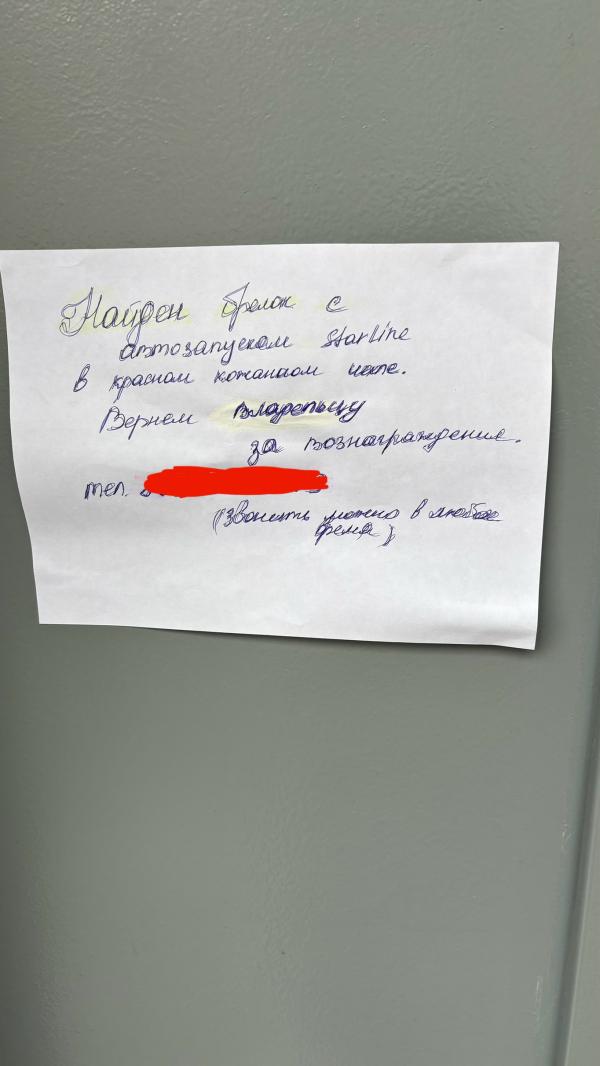 Найден брелок с
автозапуском StarLine
в красном кожаном чехле.
Вернем владельцу
за вознаграждение.
тел.
(Звонить можно в любое
время)